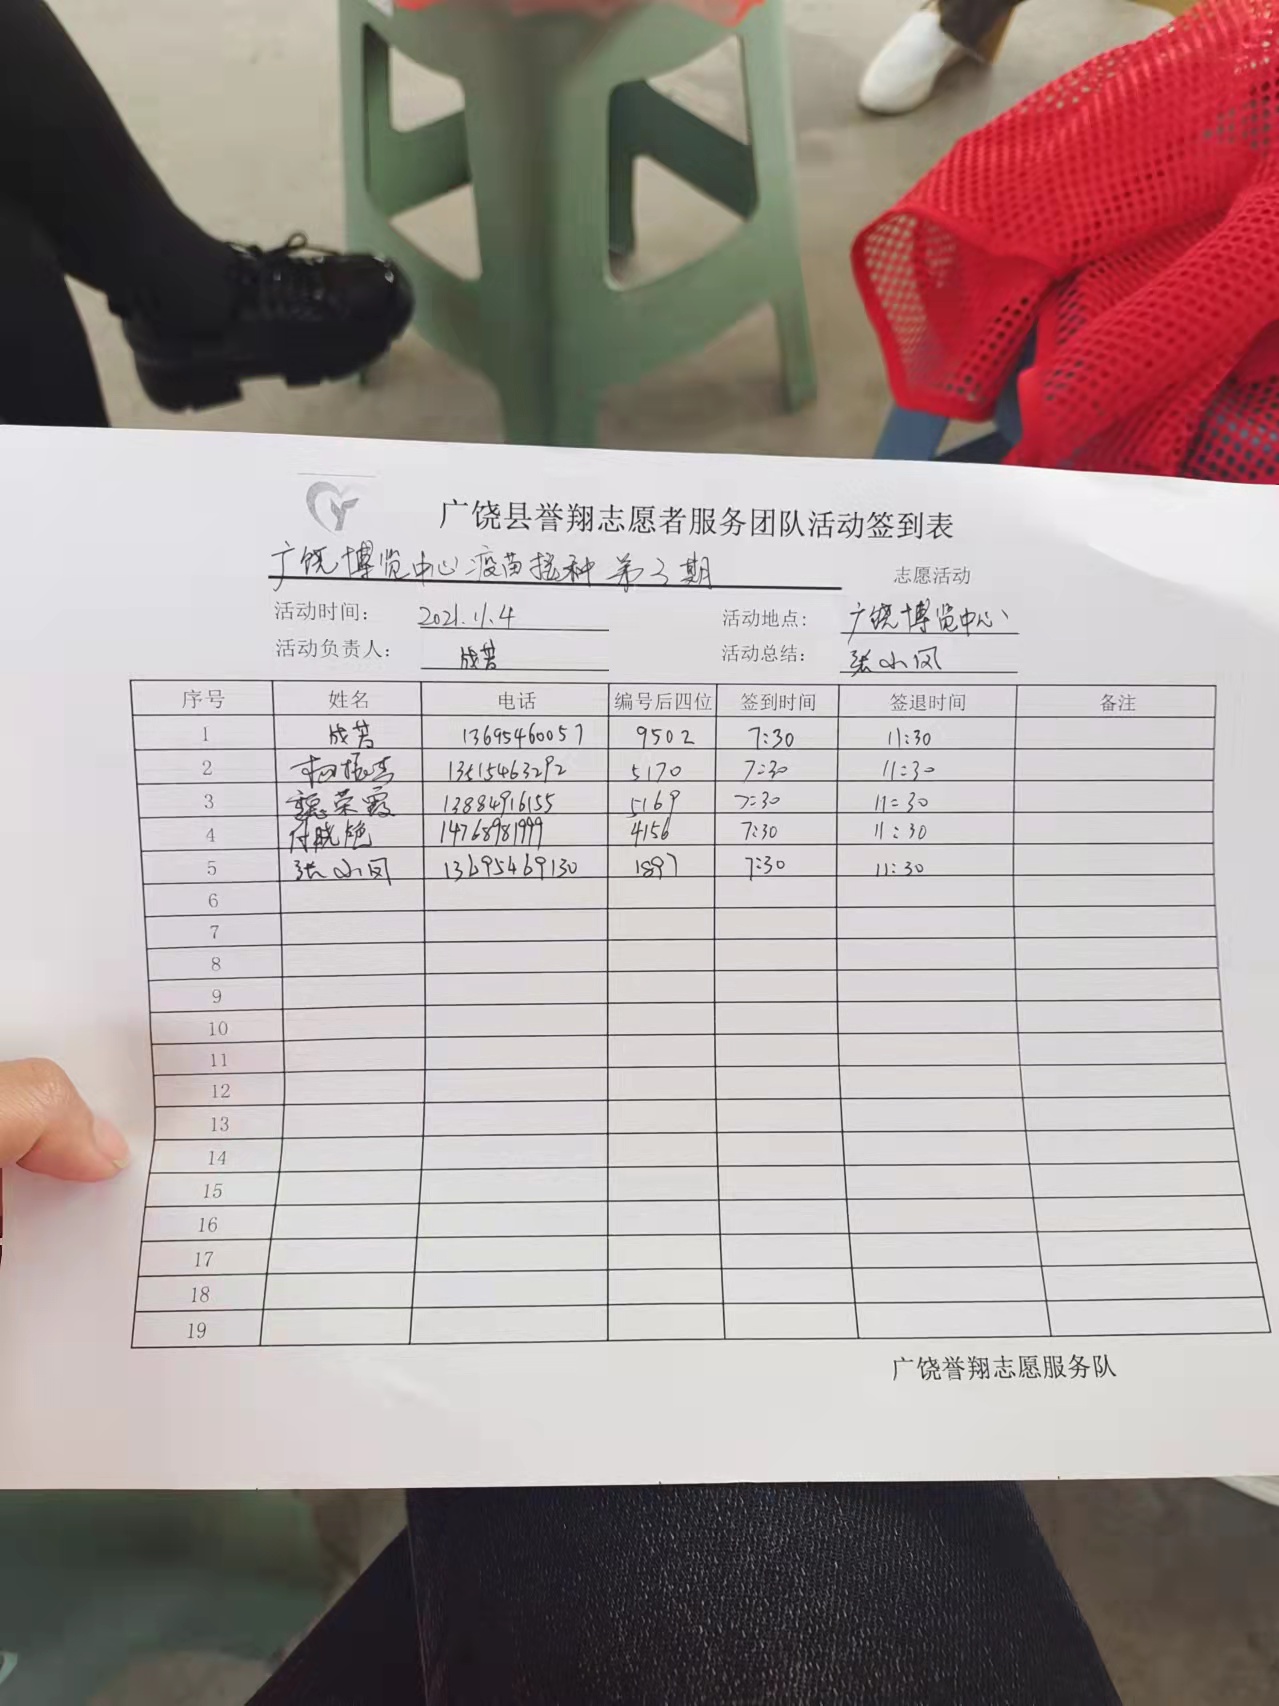 广饶县誉翔志愿者服务团队活动签到表
广饶博览中心疫苗接种第3期 志愿活动
活动时间: 2021.11.4 活动地点: 广饶博览中心
活动负责人: 成芳 活动总结: 张小凤
序号 姓名 电话 编号后四位 签到时间 签退时间 备注
1 成芳 13695460057 9502 7:30 11:30
2 13515463292 5170 7:30 11:30
3 魏荣霞 13884916155 5169 7:30 11:30
4 付晓艳 14768981999 4156 7:30 11:30
5 张小凤 13695469130 1897 7:30 11:30
6
7
8
9
10
11
12
13
14
15
16
17
18
19
广饶誉翔志愿服务队